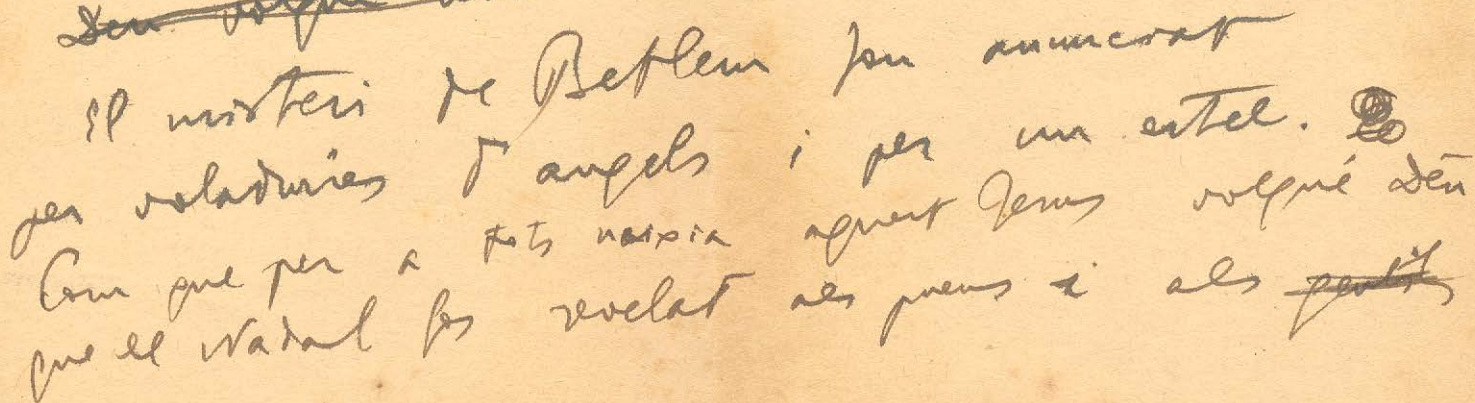 Deu volgué
El misteri de Betlem fou anunciat
per voladuries d'angels i per un estel.
Com que per a tots naixia aquest Jesus volgué Déu
que el Nadal fos revelat als jueus i als gentils